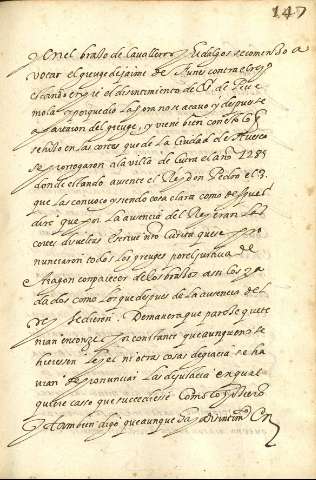 147
y en el braso de Cavalleros y hidalgos se comenso a
votar el greuge de Jaime de contra el Rey
estando en pie el disentimiento de
mola y porque dio la hora no se acavo y despues se
a tratava del greuge, y viene bien con esto lo q
se hizo en las cortes que de la Ciudad de Huesca
se prorrogaron a la villa de Çuera el año 1285
donde estando ausente el Rey don Pedro el 3.
que las convoco y siendo cosa clara como despues
dire que por la ausencia del Rey eran las
cortes disueltas escrive Çurita que se pro
nunciaron todos los greuges por el Justicia de
Aragon con parecer de los brasos assi los ya
dados como los que despues de la ausencia del
rey se dieron. De manera que parece que te
nian entonzes por constante que aunque no se
hiciessen leyes ni otras cosas de gracia se ha
vian de pronunciar la de justicia en qual
quiere casso que succediesse Como lo
y tambien digo que aunque haya disentimto En